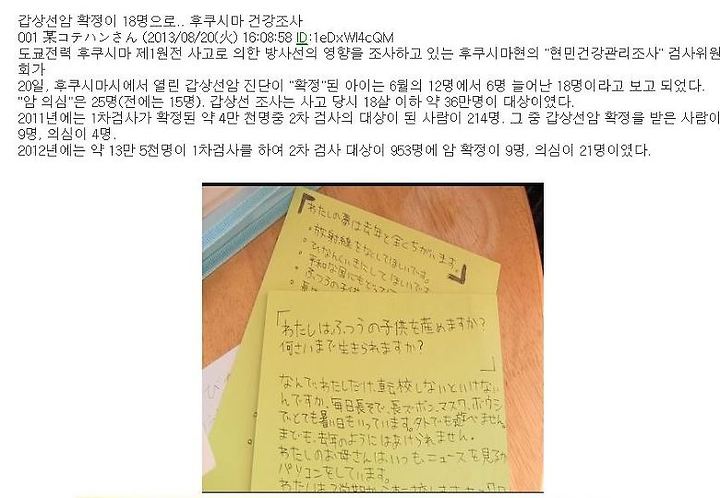 갑상선암 확정이 18명으로.. 후쿠시마 건강조사
001 某コテハンさん (2013/08/20(火) 16:08:58 ID:1eDxWl4cQM
도쿄전력 후쿠시마 제1원전 사고로 의한 방사선의 영향을 조사하고 있는 후쿠시마현의 "현민건강관리조사" 검사위원
회가
20일, 후쿠시마시에서 열린 갑상선암 진단이 "확정"된 아이는 6월의 12명에서 6명 늘어난 18명이라고 보고 되었다.
"암 의심"은 25명(전에는 15명). 갑상선 조사는 사고 당시 18살 이하 약 36만명이 대상이였다.
2011년에는 1차검사가 확정된 약 4만 천명중 2차 검사의 대상이 된 사람이 214명. 그 중 갑상선암 확정을 받은 사람이
9명, 의심이 4명.
2012년에는 약 13만 5천명이 1차검사를 하여 2차 검사 대상이 953명에 암 확정이 9명, 의심이 21명이였다.
『わたしの夢は去年と全くちがいます。
。放射線をなくしてほしいです。
。ひなんくいきにしてほしいです。
。平和な国にもどって
。ふつうの子供
「わたしはふつうの子供を産めますか?
何さいまで生きられますか?
」
なんで、わたしだけ、転校しないといけない
んですか。毎日長そで、長ズボン、マスク、ボウシ
でとても暑い日もいっています。外でも遊べません。
までも、去年のようにはあけられません。
わたしのお母さんは、いつも、ニュースを見るか
パソコンをしています。